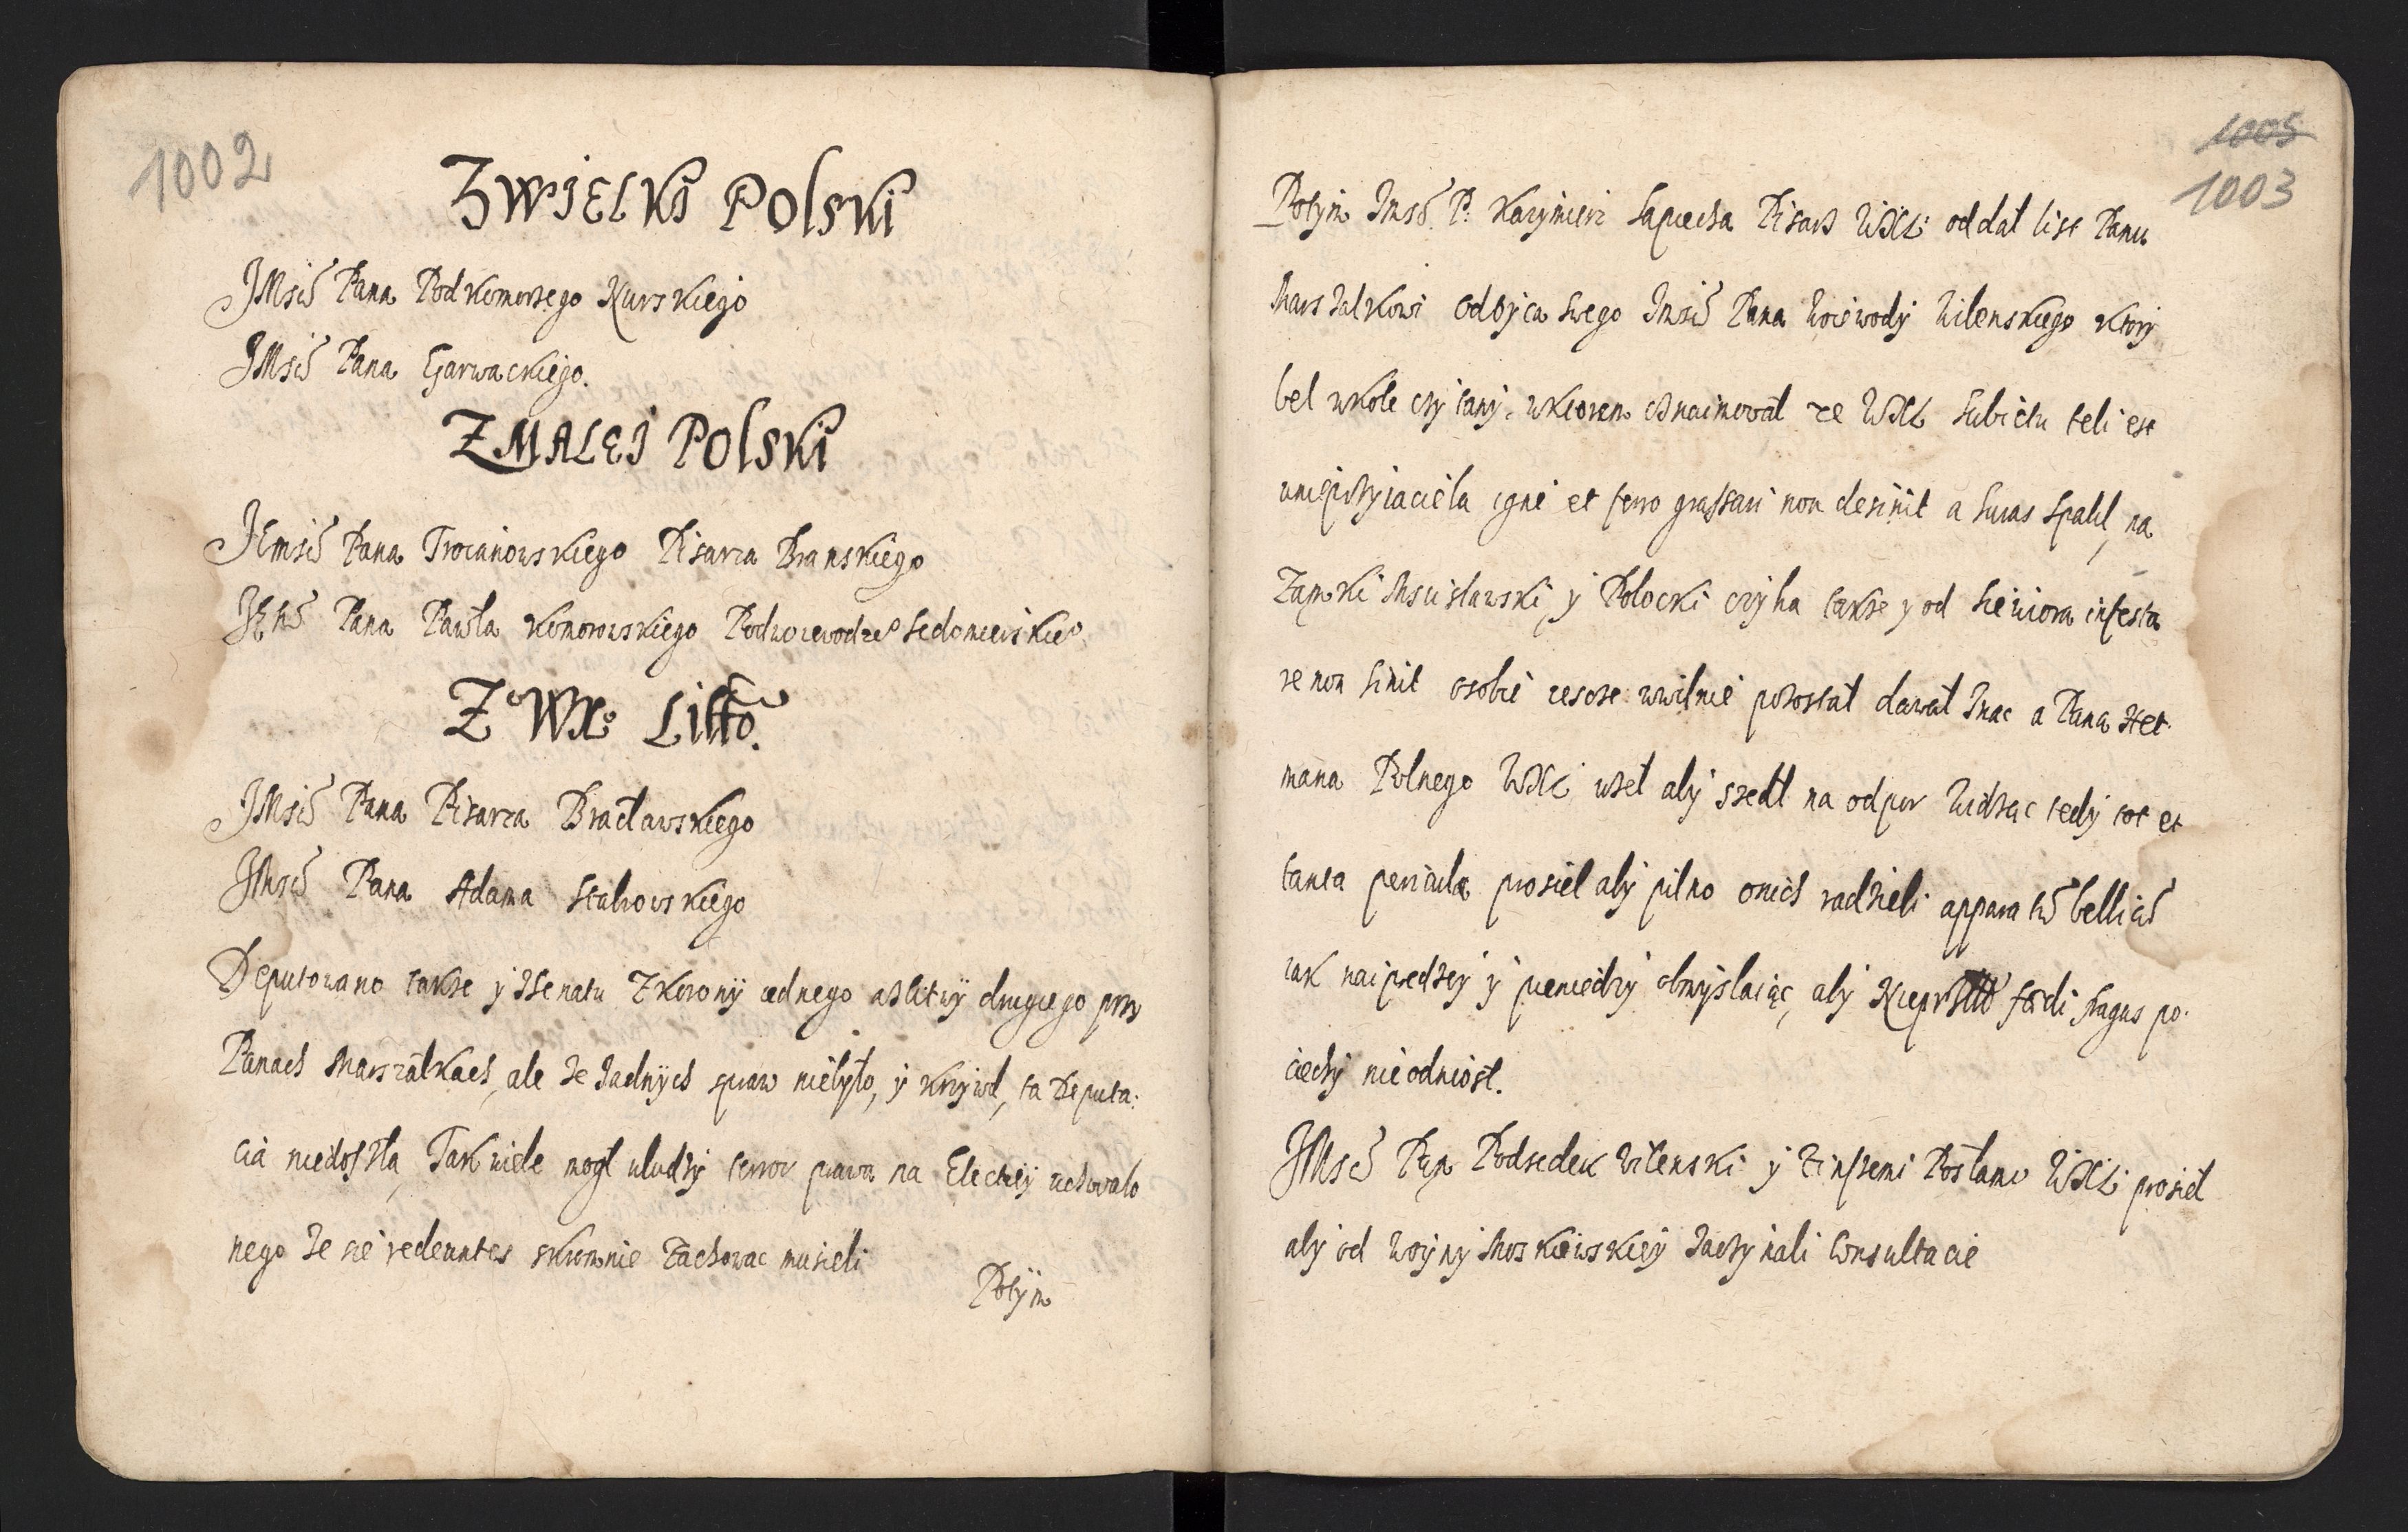 1002
ZWIELKI POLSKI
JMsci Pana Podkomorzego Nurskiego
JMsci Pana Garwackiego.
ZMALEJ POLSKI
JEmsci Pana Trocianowskiego Pisarza Branskiego
Pana Pawła Komorowskiego Podwoiewodzeo Sedomierskieo
Z WXo Litto.
JMsci Pana Pisarza Bracławskiego
JMsci Pana Adama Stabrowskiego
Deputowano takze ÿ zSenatu Z Koronÿ iednego a zLitwÿ drugiego przy
Panach Marszałkach, ale ze zadnÿch spraw niebÿło, ÿ krzÿwd, ta Deputa:
cia niedoszła, Tak wiele mogł uludzÿ terror prawa na Electiÿ uchwalo
nego ze sie redeuntes skromnie zachowac musieli
Potÿm
1005
1003
Potÿm Jmsc P: Kazÿmierz Sapiecha Pisarz WXL: oddał list Panu
Marszalkowi od Oÿca swego Jmsci Pana Woiewodÿ Wilenskiego ktorÿ
bel w kole czÿtanÿ, w ktorem oznaimował ze WXL subiectu teli est
unieprzÿiaciela igni et ferro grassari non desinit a Suras spalił, na
Zamki Mscislawski, ÿ Połocki czÿha takze y od Siewiora infesta
re non sinit osobie zesore wWilnie pozostał dawał znac a Pana Het:
mana Polnego WXL uzel abÿ szedł na odpor Widzac tedÿ tot et
tanta pericula prosieł abÿ pilno onich radzieli apparatus bellicus
iak naipredzeÿ ÿ pieniedzÿ obmÿslaiąc, abÿ fœdi fragus po:
ciechÿ nieodniosł.
JMsci Pan Podsedek Wilenski ÿ z inszemi Posłami WXL: prosieł
abÿ od Woÿnÿ Moskiewskieÿ zaczÿnali Consultacie